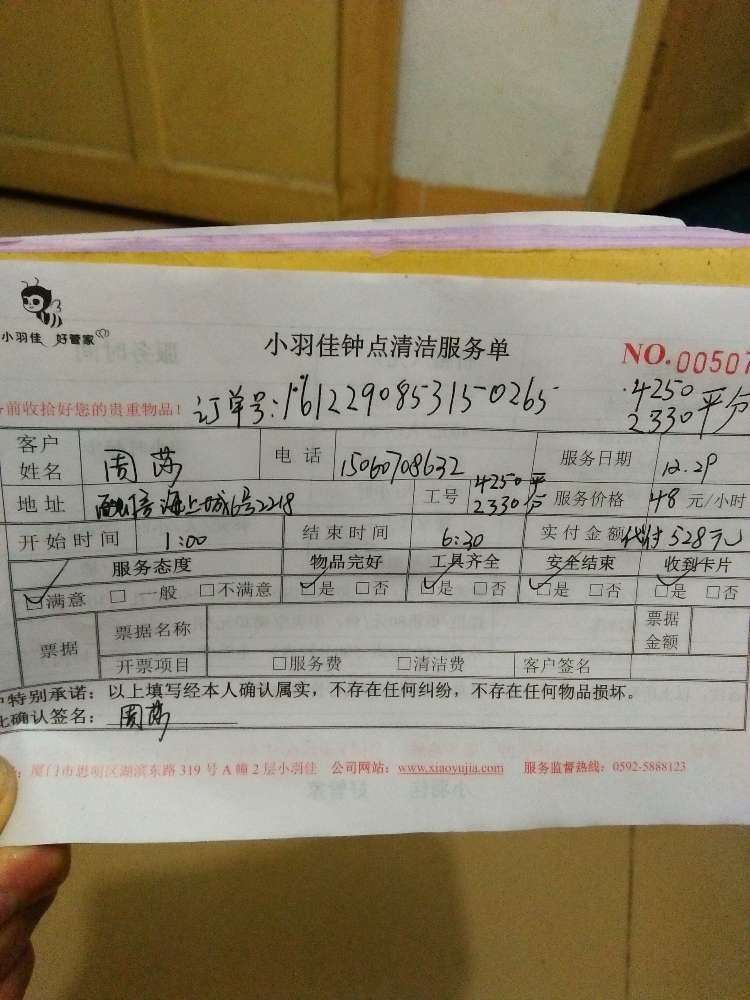 小羽佳 好管家
小羽佳钟点清洁服务单
NO.00507
前收拾好您的贵重物品！ 订单号：1612290853150265
4250
2330 平分
客户姓名 周莎 电话 15060708632 服务日期 12.29
地址 海上城6号2218 工号 4250平 2330分 服务价格 48元/小时
开始时间 1:00 结束时间 6:30 实付金额 代付528元
服务态度 物品完好 工具齐全 安全结束 收到卡片
☑满意 □一般 □不满意 ☑是 □否 ☑是 □否 ☑是 □否 ☑是 □否
票据 票据名称 票据金额
开票项目 □服务费 □清洁费 客户签名
特别承诺：以上填写经本人确认属实，不存在任何纠纷，不存在任何物品损坏。
确认签名：周莎
：厦门市思明区湖滨东路319号A幢2层小羽佳 公司网站：www.xiaoyujia.com 服务监督热线：0592-5888123